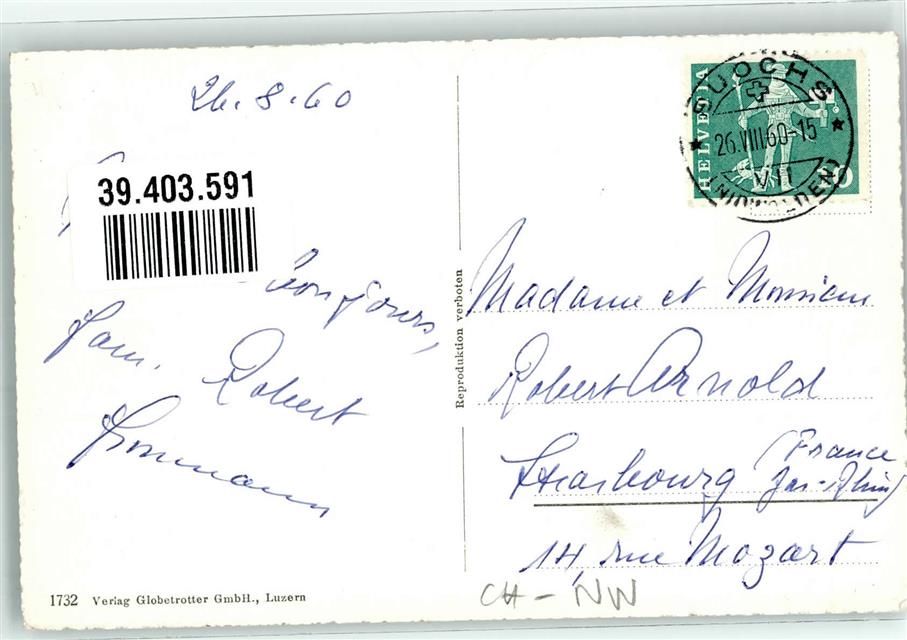 26.8.60
39.403.591
bonjours,
Fam. Robert
HELVETIA
20
BUOCHS
26.VIII.60-15
VII
(NIDWALDEN)
Reproduktion verboten
Madame et Monsieur
Robert Arnold
Strasbourg (France
Bas-Rhin)
14, rue Mozart
1732 Verlag Globetrotter GmbH., Luzern
CH - NW